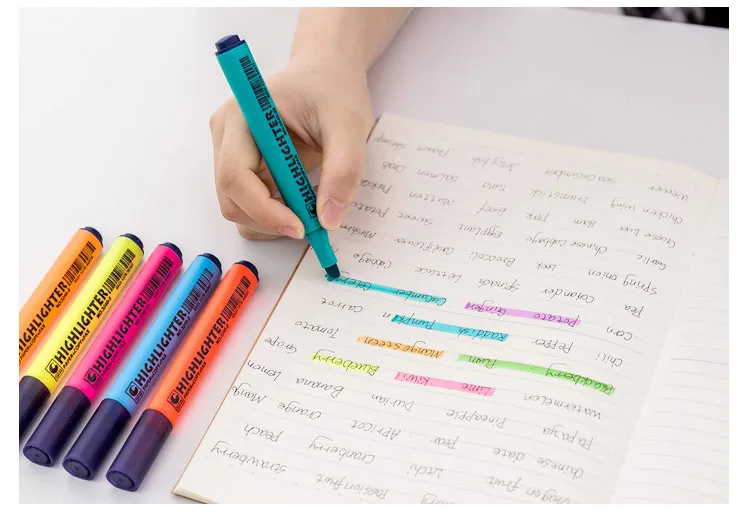 HIGHLIGHTER
HIGHLIGHTER
HIGHLIGHTER
HIGHLIGHTER
HIGHLIGHTER
HIGHLIGHTER
Passion fruit strawberry
Dragon fruit Litchi Cranberry peach
Chinese date pear Apricot Orange Mango
Papaya Pineapple Durian Banana Lemon
Watermelon Lime Kiwi Blueberry Grape
Blackberry Plum Mangosteen Tomato
Chili Pepper Raddish Pumpkin Carrot
Corn Potato Ginger Cucumber Celery
Pea Coriander Spinach Lettuce Cabbage
Spring onion Leek Broccoli Cauliflower Mushroom
Garlic Chinese cabbage Eggplant Sweet Potato
Goose liver Ham Pork Beef Mutton
Chicken wing Drumstick Tuna Salmon Crab
Weever Sea cucumber Jellyfish Prawn Shrimp